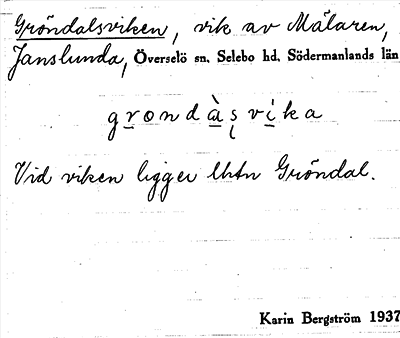 Gröndalsviken, vik av Mälaren,
Janslunda, Överselö sn. Selebo hd. Södermanlands län
grondàsvika
Vid viken ligger lhtn Gröndal.
Karin Bergström 1937